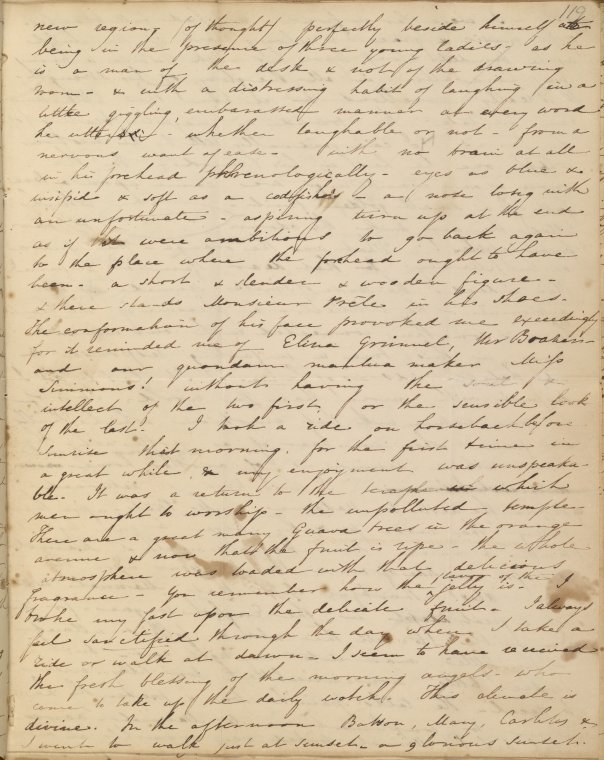 119
new region (of thought) perfectly beside himself at
being in the presence of three young ladies - as he
is a man of the desk & not of the drawing
room - & with a distressing habit of laughing in a
little giggling, embarassed manner at every word
he utters - whether laughable or not - from a
nervous want of ease - with no brain at all
in his forehead phrenologically - eyes as blue &
insipid & soft as a codfish's - a nose long with
an unfortunate - aspiring turn up at the end
as if it were ambitious to go back again
to the place where the forehead ought to have
been - a short & slender & wooden figure -
& there stands Monsieur in his shoes.
The conformation of his face provoked me exceedingly
for it reminded me of Eliza Grimmel, Mr
and our quondam mantua maker Miss
Simmons! without having the soul &
intellect of the two first, or the sensible look
of the last! I took a ride on horseback before
sunrise that morning, for the first time in
a great while, & my enjoyment was unspeaka-
ble. It was a return to the temple in which
men ought to worship - the unpolluted temple.
There are a great many Guava trees in the orange
avenue & now that the fruit is ripe - the whole
atmosphere was loaded with that delicious
fragrance - You remember how the of the jelly is - I
broke my fast upon the delicate fruit - I always
feel sanctified through the day when I take a
ride or walk at dawn - I seem to have received
the fresh blessing of the morning angels - who
come to take up the daily watch. This climate is
divine. In the afternoon Mary, Carlitos &
I went to walk just at sunset - a glorious sunset.